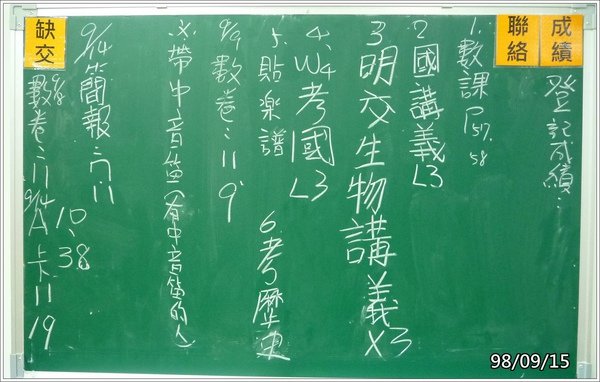 成績
登記成績：
聯絡
1.數課P57.58
2.國講義L3
3.明交生物講義X3
4.W4考國L3
5.貼樂譜
6.考歷史
9/9數卷：119
※帶中音笛(有中音笛的人)
缺交
9/14簡報：
10、38
9/8數卷：11
9/14A卡：1119
98/09/15